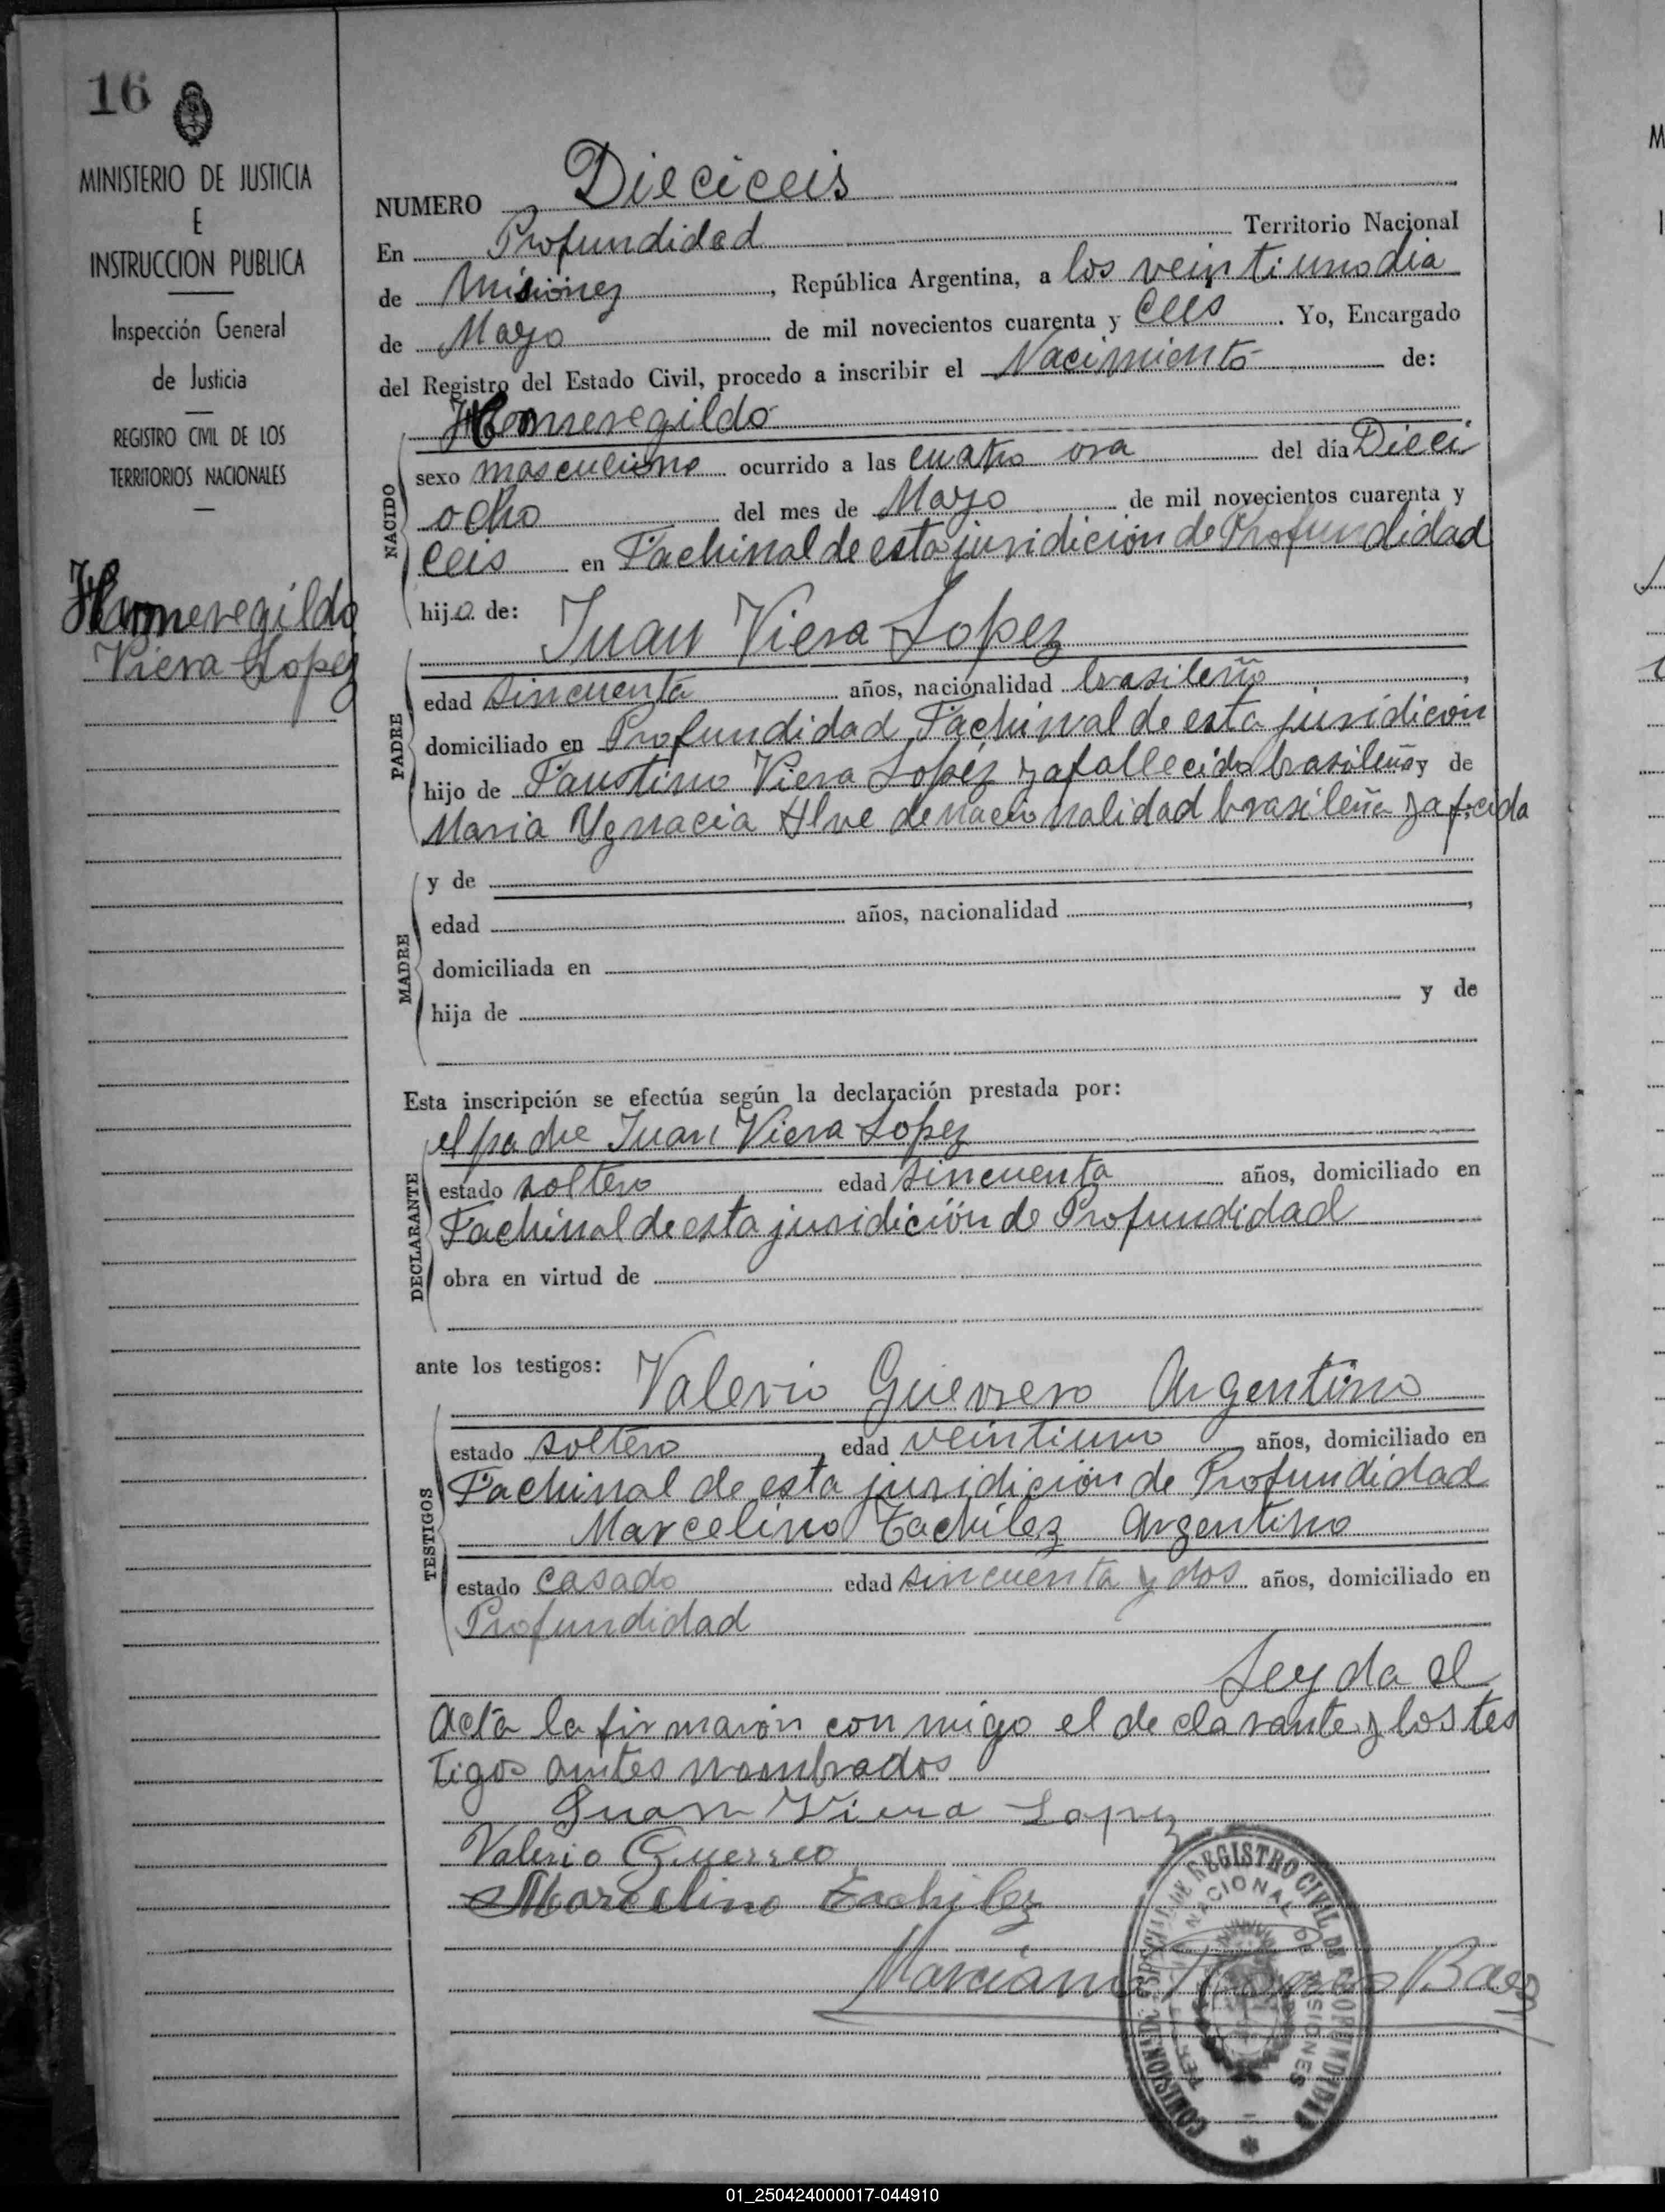 16
MINISTERIO DE JUSTICIA
E
INSTRUCCION PUBLICA
Inspección General
de Justicia
REGISTRO CIVIL DE LOS
TERRITORIOS NACIONALES
Hermeregildo
Viera Lopez
NUMERO Dieciceis
En Profundidad Territorio Nacional
de Misiones, República Argentina, a los veintiuno dia
de Mayo de mil novecientos cuarenta y Ceis. Yo, Encargado
del Registro del Estado Civil, procedo a inscribir el Nacimiento de:
Hermeregildo
NACIDO
sexo masculino ocurrido a las cuatro ora del día Dieci
ocho del mes de Mayo de mil novecientos cuarenta y
ceis en Fachinal de esta juridición de Profundidad
hijo de: Juan Viera Lopez
PADRE
edad sincuenta años, nacionalidad brasileño,
domiciliado en Profundidad Fachinal de esta juridición
hijo de Faustino Viera Lopez ya fallecido brasileño y de
Maria Ygnacia Alve de nacionalidad brasileña ya
y de
MADRE
edad años, nacionalidad ,
domiciliada en
hija de y de
Esta inscripción se efectúa según la declaración prestada por:
el padre Juan Viera Lopez
DECLARANTE
estado soltero edad sincuenta años, domiciliado en
Fachinal de esta juridición de Profundidad
obra en virtud de
ante los testigos: Valerio Guerrero Argentino
TESTIGOS
estado soltero, edad veintiuno años, domiciliado en
Fachinal de esta juridición de Profundidad
Marcelino Tachilez Argentino
estado casado edad sincuenta y dos años, domiciliado en
Profundidad
Leyda el
acta la firmaron con migo el declarante y los tes
tigos antes nombrados
Juan Viera Lopez
Valerio Guerrero
Marcelino Tachilez
Marciano Baez
COMISION DE REGISTRO CIVIL DE PROFUNDIDAD
NACIONAL DE MISIONES
01_250424000017-044910